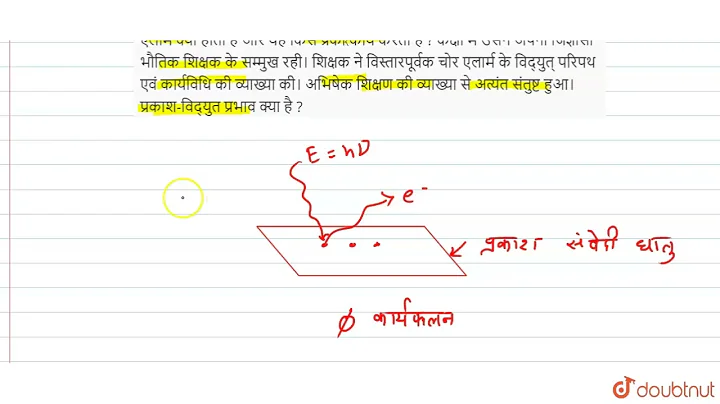 एलार्म क्या होता है और यह किस प्रकार कार्य करता है ? कक्षा में उसने अपनी जिज्ञासा
भौतिक शिक्षक के सम्मुख रही। शिक्षक ने विस्तारपूर्वक चोर एलार्म के विद्युत् परिपथ
एवं कार्यविधि की व्याख्या की। अभिषेक शिक्षण की व्याख्या से अत्यंत संतुष्ट हुआ।
प्रकाश-विद्युत प्रभाव क्या है ?
E = hν
e⁻
प्रकाश संवेदी धातु
ϕ कार्यफलन
doubtnut